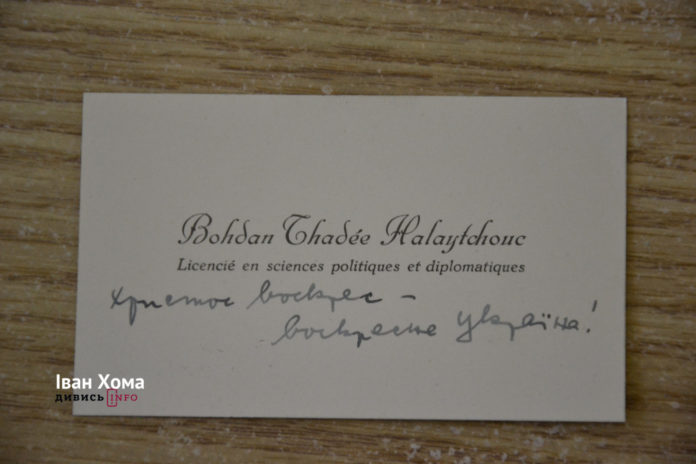 Bohdan Thadée Halaytchouc
Licencié en sciences politiques et diplomatiques
Христос воскрес –
воскресне Україна!
Іван Хома
дивись INFO